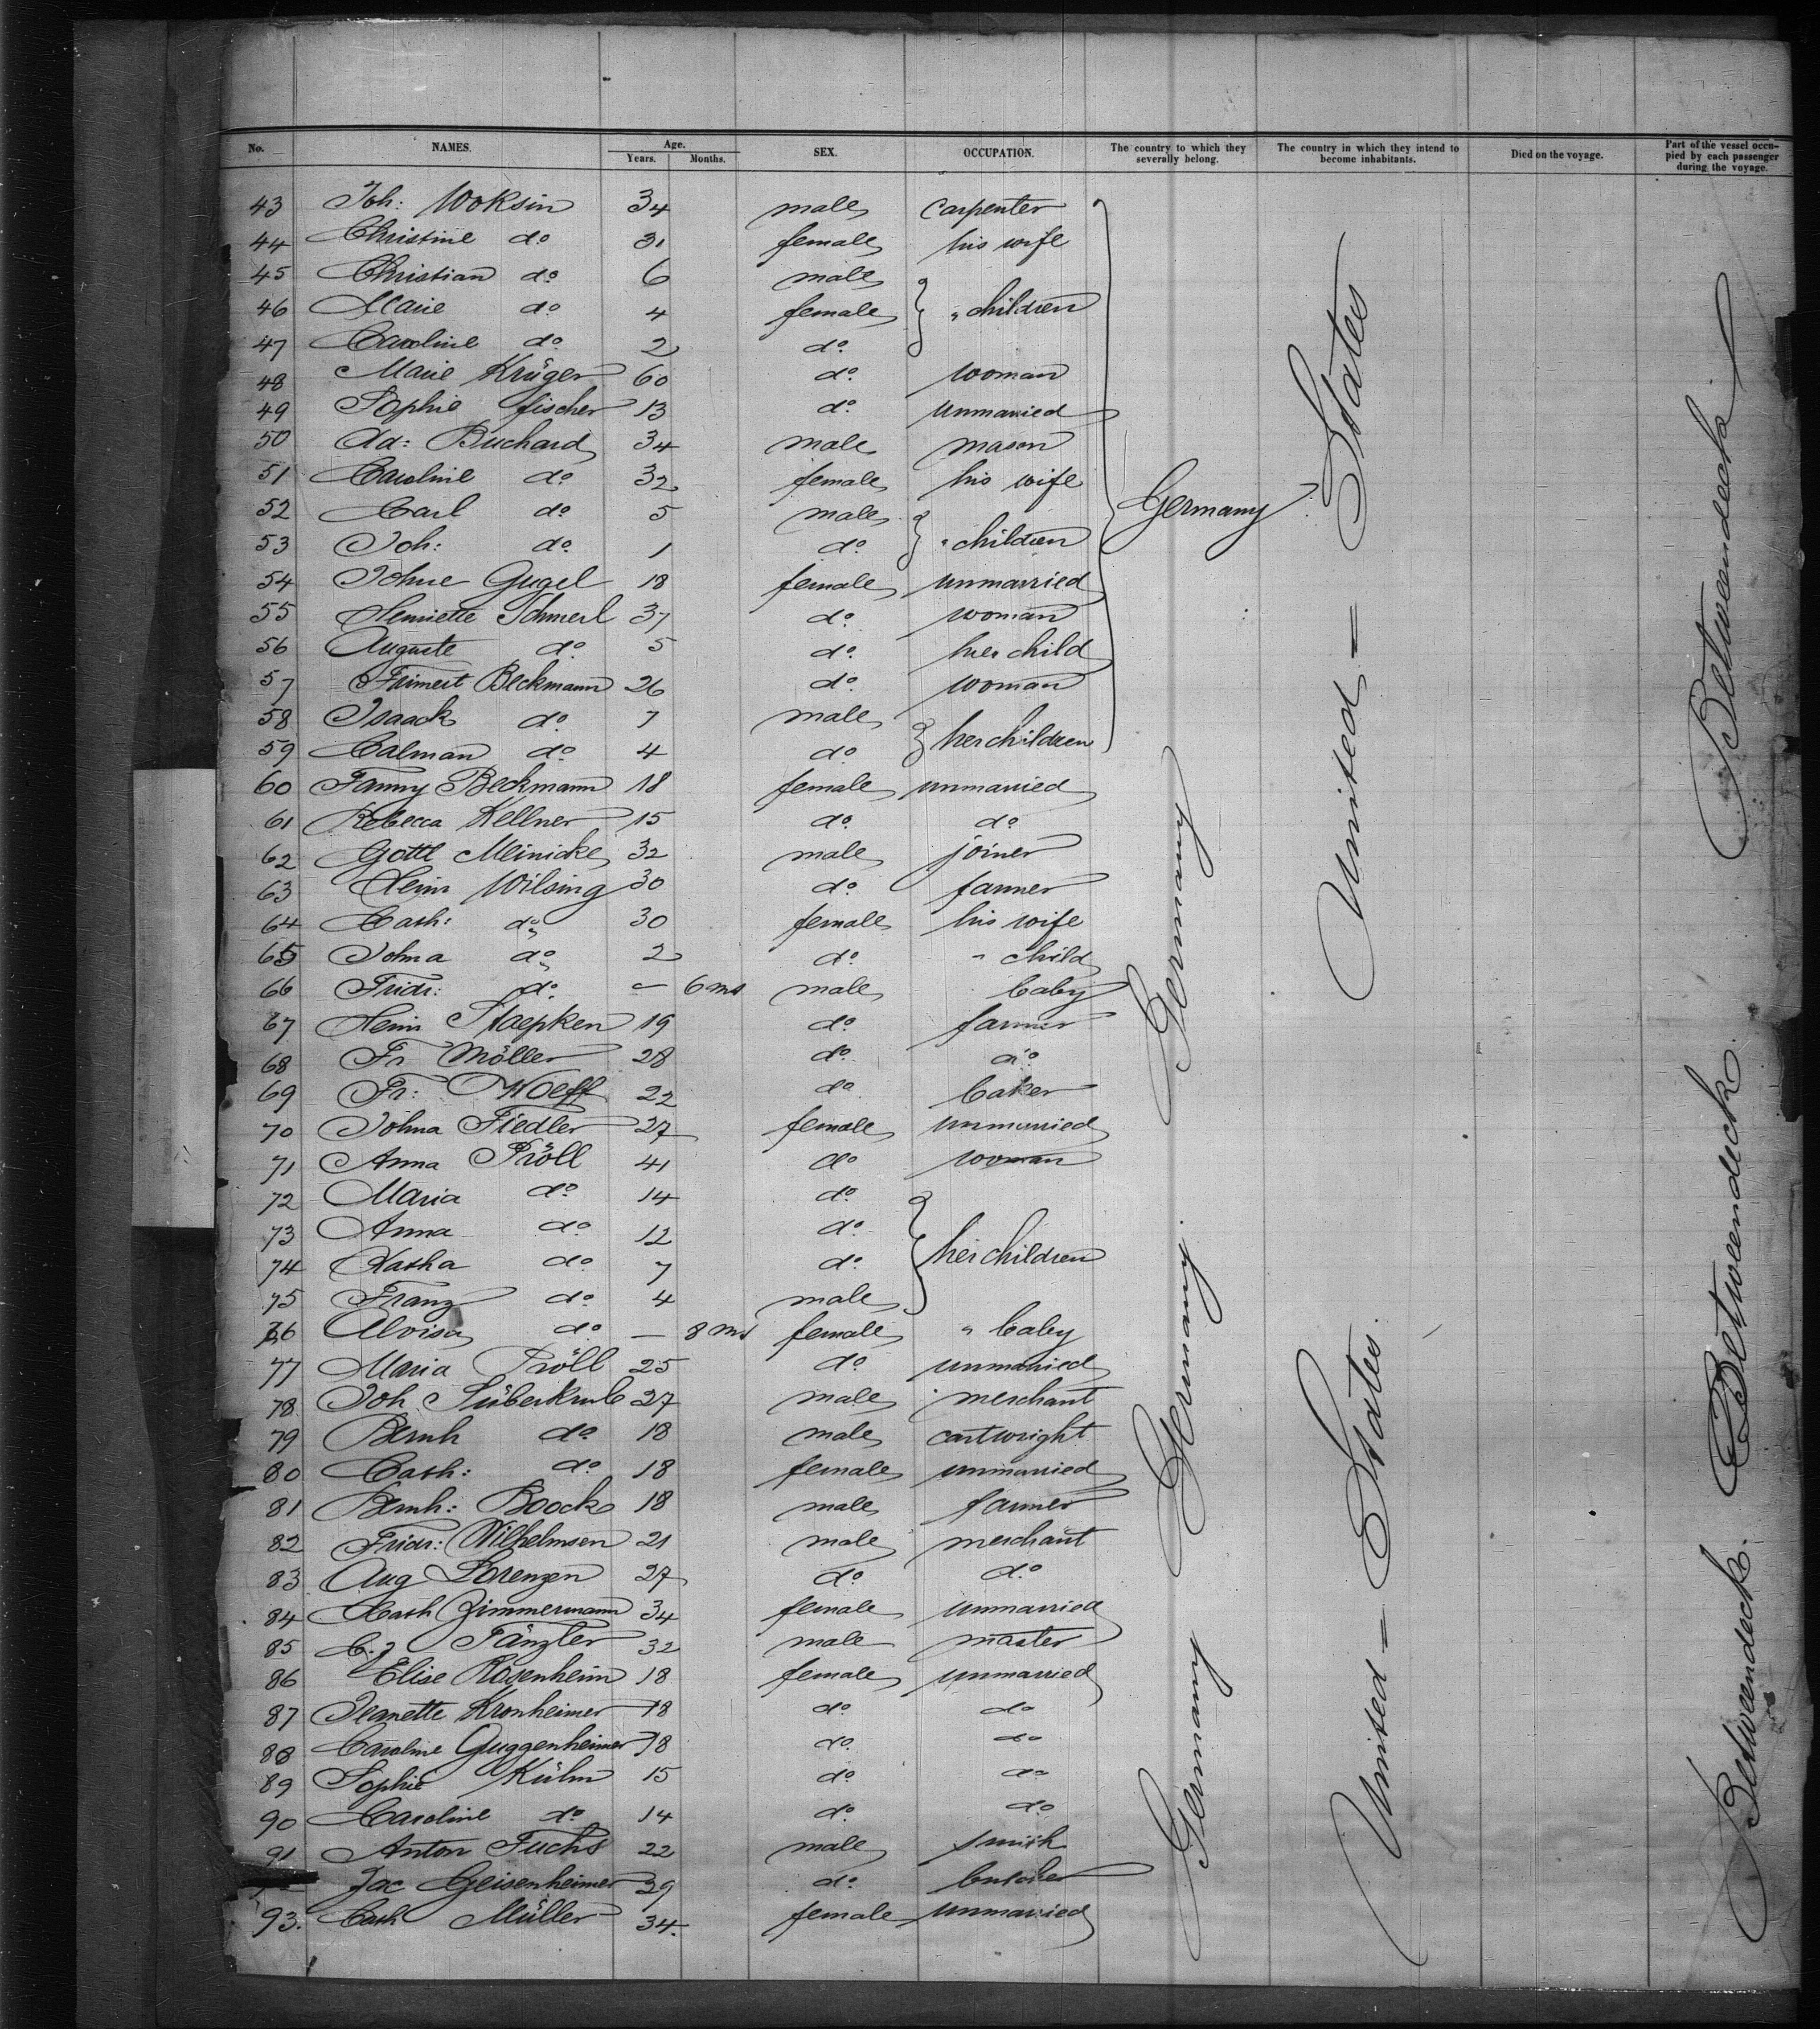 No. NAMES. Age. Years. Months. SEX. OCCUPATION. The country to which they severally belong. The country in which they intend to become inhabitants. Died on the voyage. Part of the vessel occupied by each passenger during the voyage.
43 Joh: Woksin 34 male carpenter
44 Christine do 31 female his wife
45 Christian do 6 male
46 Marie do 4 female " children
47 Caroline do 2 do
48 Marie Krüger 60 do woman
49 Sophie Fischer 13 do unmarried
50 Ad: Buchard 34 male mason
51 Caroline do 32 female his wife
52 Carl do 5 male
53 Joh: do 1 do " children
54 Johne Gugel 18 female unmarried
55 Henriette Schmerl 37 do woman
56 Auguste do 5 do her child
57 Beckmann 26 do woman
58 Isaack do 7 male
59 Calman do 4 do her children
60 Fanny Beckmann 18 female unmarried
61 Rebecca Kellner 15 do do
62 Gottl Meinicke 32 male joiner
63 Heinr Wilsing 30 do farmer
64 Cath: do 30 female his wife
65 Johna do 2 do " child
66 Fridr: do — 6 ms male baby
67 Heinr Staepken 19 do farmer
68 Fr Möller 28 do do
69 Fr: 22 do baker
70 Johna Fiedler 27 female unmarried
71 Anna Pröll 41 do woman
72 Maria do 14 do
73 Anna do 12 do
74 Katha do 7 do her children
75 Franz do 4 male
76 Aloisa do — 8 ms female " baby
77 Maria Pröll 25 do unmarried
78 Joh Süberkrub 27 male merchant
79 Bernh do 18 male cartwright
80 Cath: do 18 female unmarried
81 Bernh: Boock 18 male farmer
82 Fridr: Wilhelmsen 21 male merchant
83 Aug Lorenzen 27 do do
84 Cath Zimmermann 34 female unmarried
85 C. J Tänzler 32 male master
86 Elise Rosenheim 18 female unmarried
87 Jeanette Kronheimer 18 do do
88 Caroline Guggenheimer 18 do do
89 Sophie Kühn 15 do do
90 Caroline do 14 do do
91 Anton Fuchs 22 male smith
Jac Geisenheimer 39 do butcher
93. Cath Müller 34. female unmarried
Germany
Germany
Germany
Germany
United - States
United - States.
Betweendecks
Betweendeck.
Betweendeck.